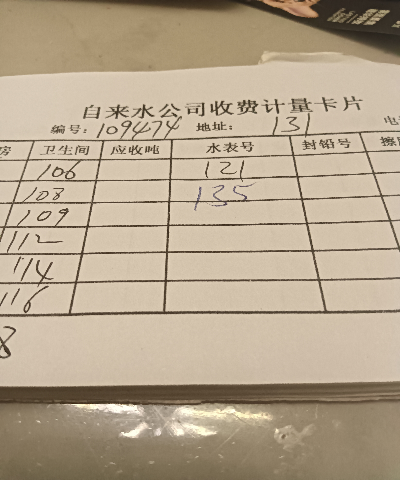 自来水公司收费计量卡片
编号: 109474 地址: 131
卫生间 应收吨 水表号 封铅号
106 121
108 135
109
112
114
116